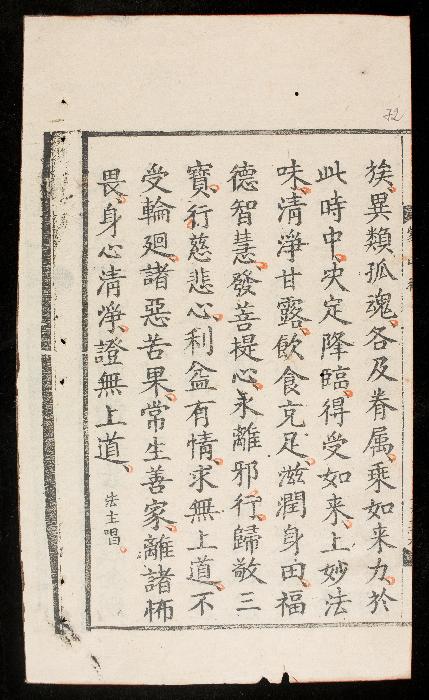 72
族異類孤魂各及眷属乘如来力於
此時中央定降臨得受如来上妙法
味清淨甘露飲食充足滋潤身田福
德智慧發菩提心永離邪行歸敬三
寶行慈悲心利益有情求無上道不
受輪廻諸惡苦果常生善家離諸怖
畏身心清淨證無上道 法主唱